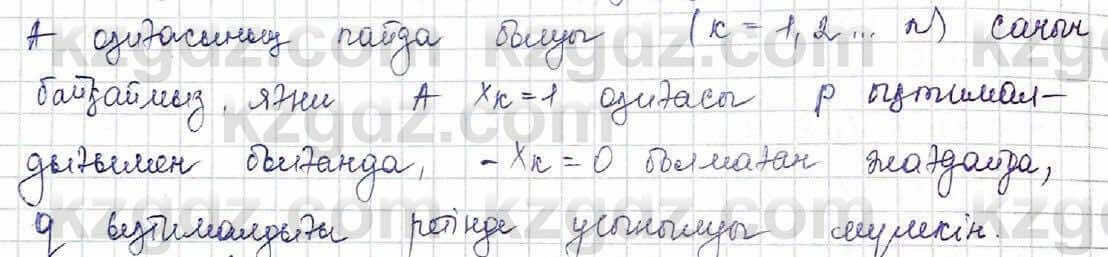 А оқиғасының пайда болуы (к = 1, 2 ... n) санын
байқаймыз, яғни А хк = 1 оқиғасы р ықтимал-
дығымен болғанда, - Хк = 0 болмаған жағдайда,
q ықтималдығы ретінде ұсынылуы мүмкін.